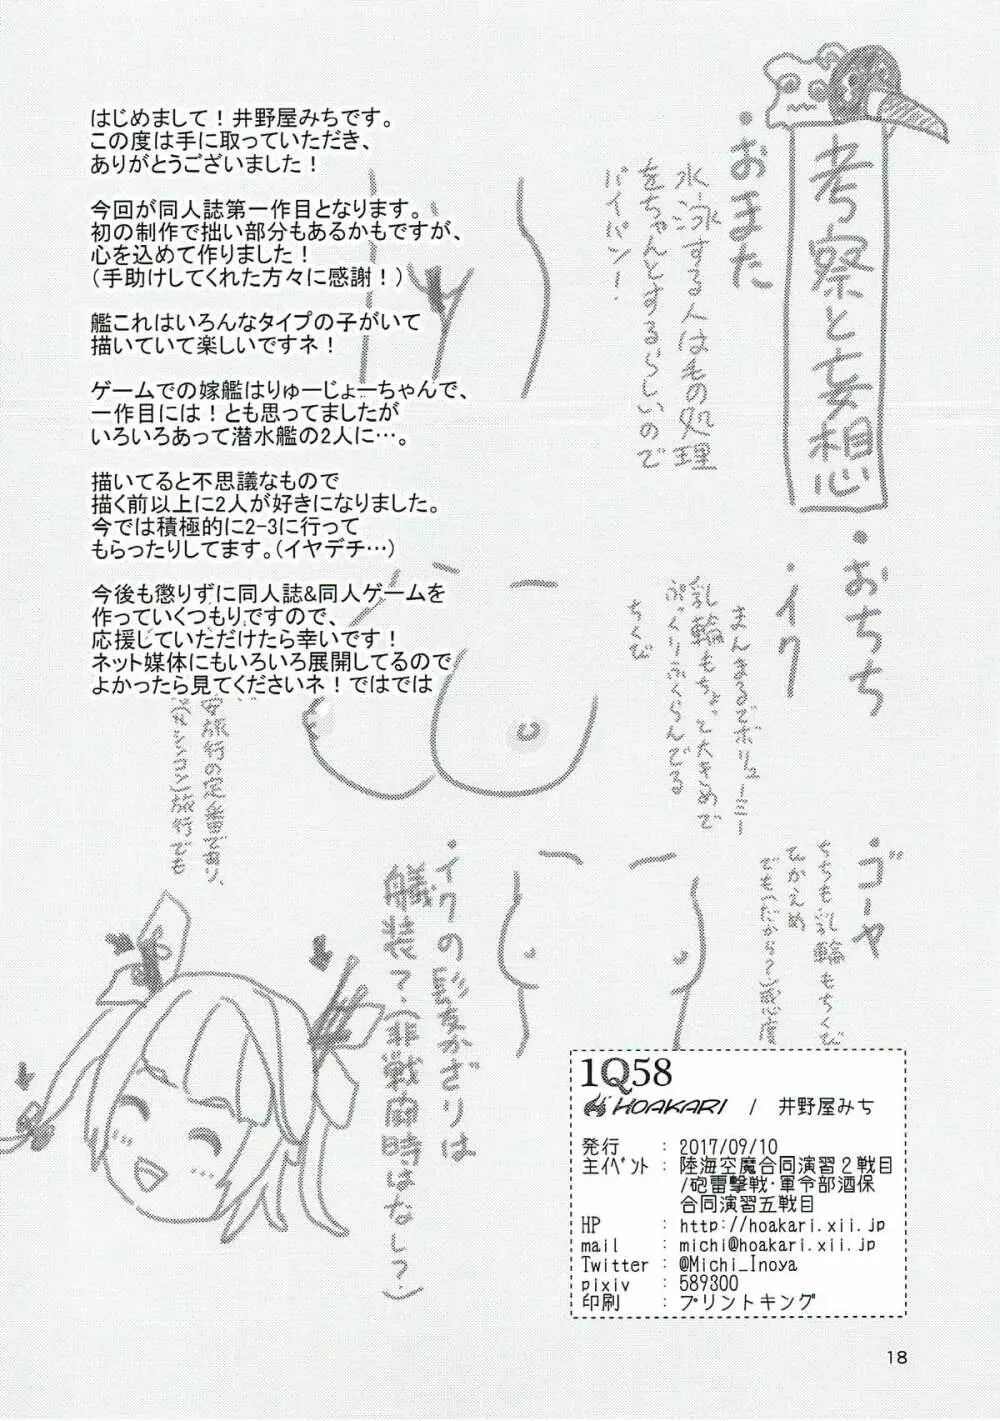 はじめまして！井野屋みちです。
この度は手に取っていただき、
ありがとうございました！
今回が同人誌第一作目となります。
初の制作で拙い部分もあるかもですが、
心を込めて作りました！
（手助けしてくれた方々に感謝！）
艦これはいろんなタイプの子がいて
描いていて楽しいですネ！
ゲームでの嫁艦はりゅーじょーちゃんで、
一作目には！とも思ってましたが
いろいろあって潜水艦の2人に…。
描いてると不思議なもので
描く前以上に2人が好きになりました。
今では積極的に2-3に行って
もらったりしてます。（イヤデチ…）
今後も懲りずに同人誌&同人ゲームを
作っていくつもりですので、
応援していただけたら幸いです！
ネット媒体にもいろいろ展開してるので
よかったら見てくださいネ！ではでは
考察と妄想
・おまた
水泳する人は毛の処理
をちゃんとするらしいので
パイパン！
・おちち
・イク
まんまるでボリューミー
乳輪もちょって大きめで
ぷっくりふくらんでる
ちくび
ゴーヤ
ちちも乳輪もちくび
ひかえめ
でもだから？感度
・イクの髪かざりは
艤装て、（非戦闘時はなし？）
旅行の定番であり、
旅行でも
1Q58
HOAKARI / 井野屋みち
発行 : 2017/09/10
主ｲﾍﾞﾝﾄ : 陸海空魔合同演習２戦目
/砲雷撃戦・軍令部酒保
合同演習五戦目
HP : http://hoakari.xii.jp
mail : michi@hoakari.xii.jp
Twitter : @Michi_Inoya
pixiv : 589300
印刷 : プリントキング
18